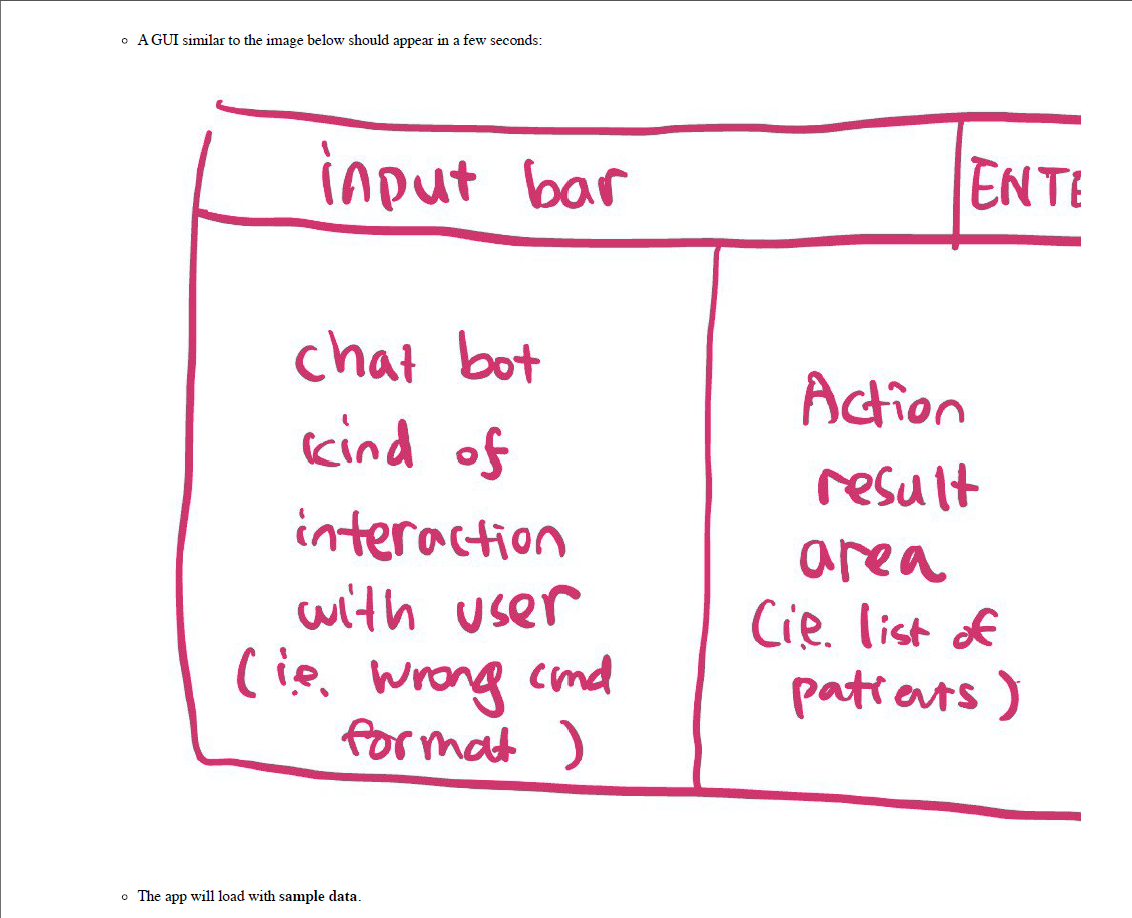 A GUI similar to the image below should appear in a few seconds:
input bar
ENTE
chat bot
kind of
interaction
with user
(ie. wrong cmd
format )
Action
result
area
(ie. list of
patients)
The app will load with sample data.